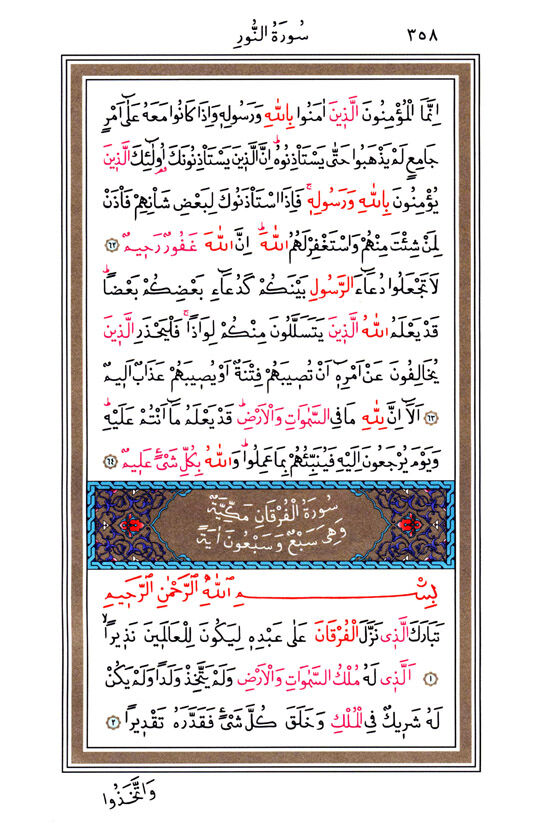 ٣٥٨ سُورَةُ النُّورِ
اِنَّمَا الْمُؤْمِنُونَ الَّذِينَ اٰمَنُوا بِاللّٰهِ وَرَسُولِهِ وَاِذَا كَانُوا مَعَهُ عَلٰٓى اَمْرٍ
جَامِعٍ لَمْ يَذْهَبُوا حَتّٰى يَسْتَاْذِنُوهُۜ اِنَّ الَّذِينَ يَسْتَاْذِنُونَكَ اُو۬لٰٓئِكَ الَّذِينَ
يُؤْمِنُونَ بِاللّٰهِ وَرَسُولِهِۚ فَاِذَا اسْتَاْذَنُوكَ لِبَعْضِ شَاْنِهِمْ فَاْذَنْ
لِمَنْ شِئْتَ مِنْهُمْ وَاسْتَغْفِرْ لَهُمُ اللّٰهَۜ اِنَّ اللّٰهَ غَفُورٌ رَحِيمٌ ٦٢
لَا تَجْعَلُوا دُعَٓاءَ الرَّسُولِ بَيْنَكُمْ كَدُعَٓاءِ بَعْضِكُمْ بَعْضاًۜ
قَدْ يَعْلَمُ اللّٰهُ الَّذِينَ يَتَسَلَّلُونَ مِنْكُمْ لِوَاذاًۚ فَلْيَحْذَرِ الَّذِينَ
يُخَالِفُونَ عَنْ اَمْرِهِٓ اَنْ تُصِيبَهُمْ فِتْنَةٌ اَوْ يُصِيبَهُمْ عَذَابٌ اَلِيمٌ
٦٣ اَلَٓا اِنَّ لِلّٰهِ مَا فِي السَّمٰوَاتِ وَالْاَرْضِۜ قَدْ يَعْلَمُ مَٓا اَنْتُمْ عَلَيْهِۜ
وَيَوْمَ يُرْجَعُونَ اِلَيْهِ فَيُنَبِّئُهُمْ بِمَا عَمِلُواۜ وَاللّٰهُ بِكُلِّ شَيْءٍ عَلِيمٌ ٦٤
سُورَةُ الْفُرْقَانِ مَكِّيَّةٌ
وَهِيَ سَبْعٌ وَسَبْعُونَ اٰيَةً
بِسْمِ اللّٰهِ الرَّحْمٰنِ الرَّحِيمِ
تَبَارَكَ الَّذِي نَزَّلَ الْفُرْقَانَ عَلٰى عَبْدِهِ لِيَكُونَ لِلْعَالَمِينَ نَذِيراًۙ
١ اَلَّذِي لَهُ مُلْكُ السَّمٰوَاتِ وَالْاَرْضِ وَلَمْ يَتَّخِذْ وَلَداً وَلَمْ يَكُنْ
لَهُ شَرِيكٌ فِي الْمُلْكِ وَخَلَقَ كُلَّ شَيْءٍ فَقَدَّرَهُ تَقْدِيراً ٢
وَاتَّخَذُوا